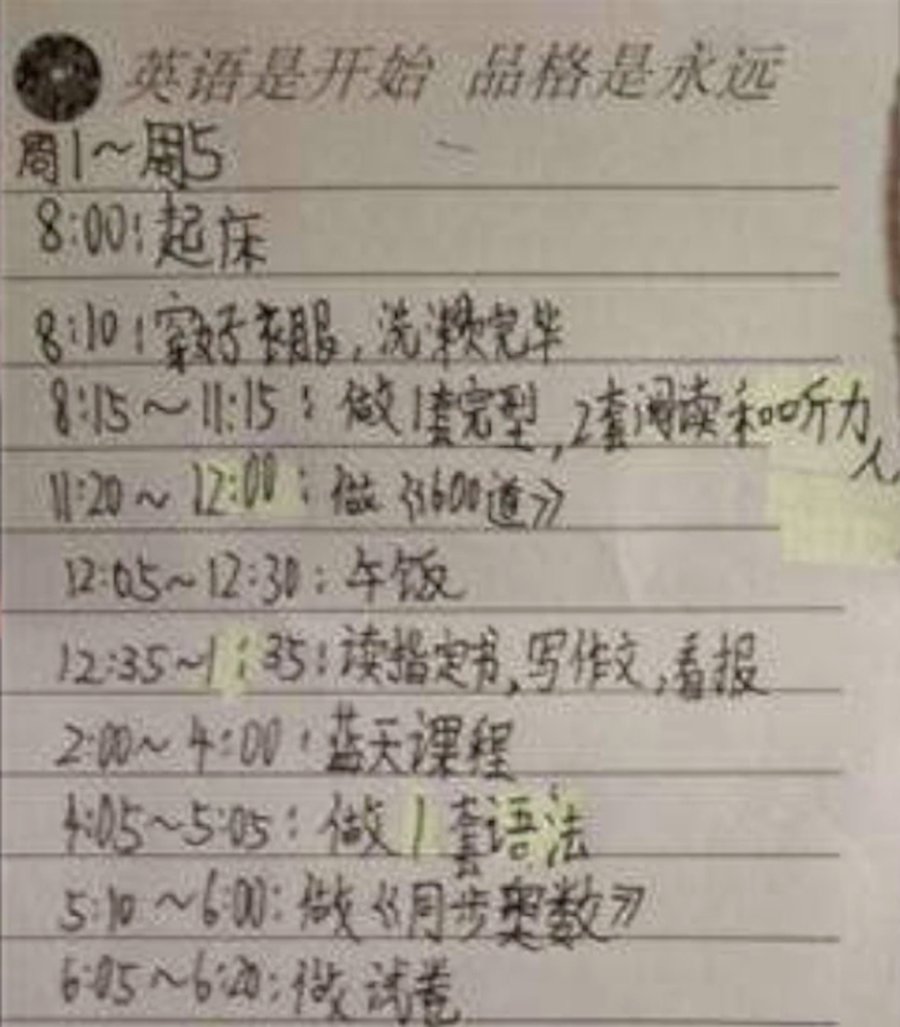 英语是开始 品格是永远
周1～周5
8:00:起床
8:10:穿好衣服,洗漱完毕
8:15～11:15:做1套完型,2套阅读和听力
11:20～12:00:做《1600道》
12:05～12:30:午饭
12:35～1:35:读指定书,写作文,看报
2:00～4:00:蓝天课程
4:05～5:05:做1套语法
5:10～6:00:做《同步奥数》
6:05～6:20:做试卷